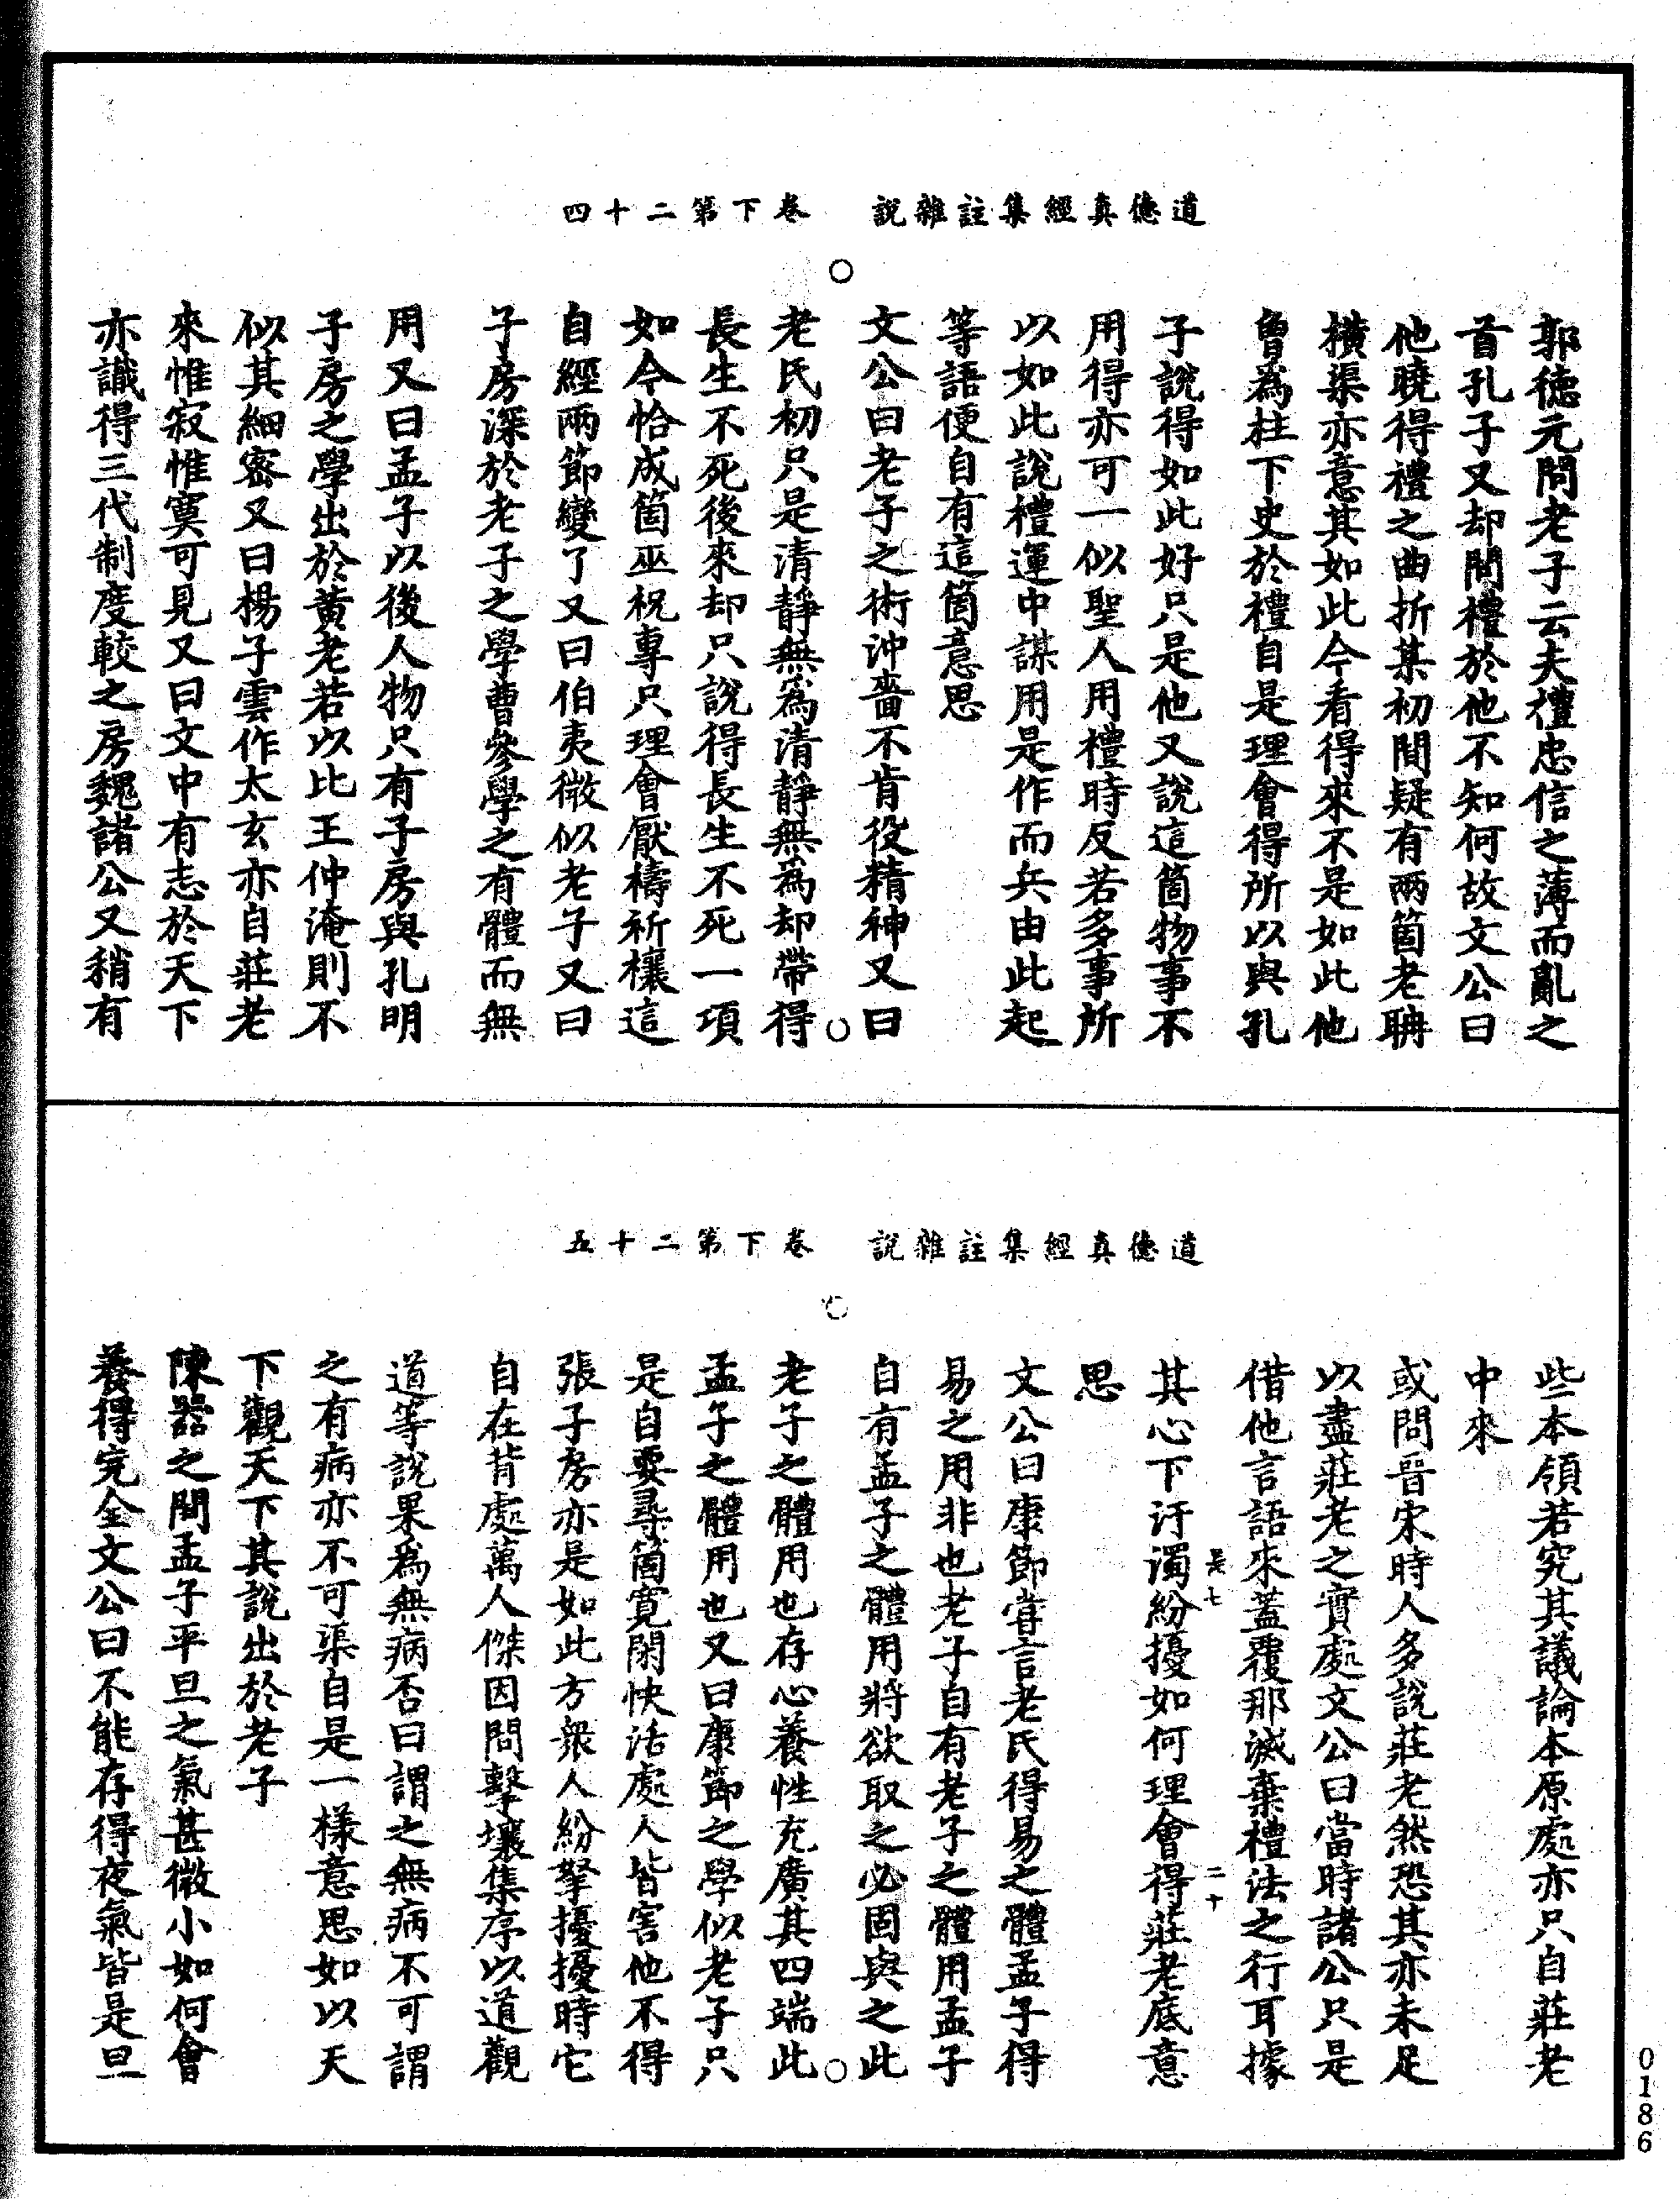 道德真經集註雜說 卷下第二十四
郭德元問老子云夫禮忠信之薄而亂之
首孔子又却問禮於他不知何故文公曰
他曉得禮之曲折某初間疑有兩箇老聃
橫渠亦意其如此今看得來不是如此他
魯為柱下史於禮自是理會得所以與孔
子說得如此好只是他又說這箇物事不
用得亦可一似聖人用禮時反若多事所
以如此說禮運中謀用是作而兵由此起
等語便自有這箇意思
文公曰老子之術沖嗇不肯役精神又曰
老氏初只是清靜無為清靜無為却帶得
長生不死後來却只說得長生不死一項
如今恰成箇巫祝專只理會厭禱祈禳這
自經兩節變了又曰伯夷微似老子又曰
子房深於老子之學曹參學之有體而無
用又曰孟子以後人物只有子房與孔明
子房之學出於黃老若以比王仲淹則不
似其細密又曰楊子雲作太玄亦自莊老
來惟寂惟寞可見又曰文中有志於天下
亦識得三代制度較之房魏諸公又稍有
道德真經集註雜說 卷下第二十五
些本領若究其議論本原處亦只自莊老
中來
或問晉宋時人多說莊老然恐其亦未足
以盡莊老之實處文公曰當時諸公只是
借他言語來蓋覆那滅棄禮法之行耳據
其心下汙濁紛擾如何理會得莊老底意
思
文公曰康節嘗言老氏得易之體孟子得
易之用非也老子自有老子之體用孟子
自有孟子之體用將欲取之必固與之此
老子之體用也存心養性充廣其四端此
孟子之體用也又曰康節之學似老子只
是自要尋箇寬閑快活處人皆害他不得
張子房亦是如此方衆人紛拏擾擾時它
自在背處萬人傑因問擊壤集序以道觀
道等說果為無病否曰謂之無病不可謂
之有病亦不可渠自是一樣意思如以天
下觀天下其說出於老子
陳器之問孟子平旦之氣甚微小如何會
養得完全文公曰不能存得夜氣皆是旦
0186